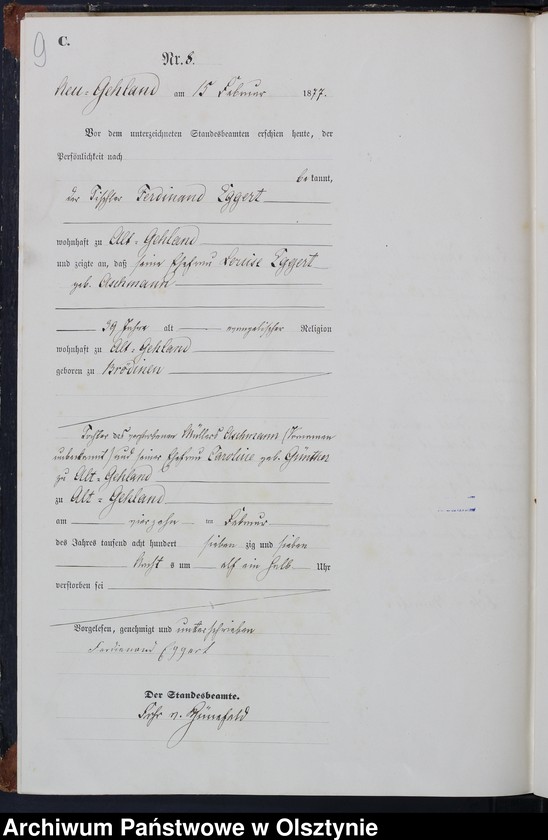 9
C.
Nr. 8.
Neu-Gehland am 15 Februar 1877.
Vor dem unterzeichneten Standesbeamten erschien heute, der
Persönlichkeit nach
be kannt,
der Tischler Ferdinand Eggert
wohnhaft zu Alt-Gehland
und zeigte an, daß seine Ehefrau Louise Eggert
geb. Aschmann
39 Jahre alt evangelischer Religion
wohnhaft zu Alt-Gehland
geboren zu Brödinen
Tochter des verstorbenen Müllers Aschmann (Vornamen
unbekannt) und seiner Ehefrau Caroline geb. Günther
zu Alt-Gehland
zu Alt-Gehland
am vierzehn ten Februar
des Jahres tausend acht hundert sieben zig und sieben
Nacht s um elf ein halb Uhr
verstorben sei
Vorgelesen, genehmigt und unterschrieben
Ferdienand Eggert
Der Standesbeamte.
Frhr v.
Archiwum Państwowe w Olsztynie